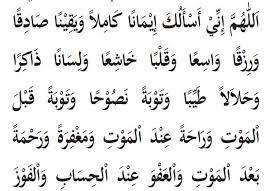 اَللّٰهُمَّ إِنِّيْ أَسْأَلُكَ إِيْمَانًا كَامِلاً وَيَقِيْنًا صَادِقًا
وَرِزْقًا وَاسِعًا وَقَلْبًا خَاشِعًا وَلِسَانًا ذَاكِرًا
وَحَلاَلاً طَيِّبًا وَتَوْبَةً نَصُوْحًا وَتَوْبَةً قَبْلَ
الْمَوْتِ وَرَاحَةً عِنْدَ الْمَوْتِ وَمَغْفِرَةً وَرَحْمَةً
بَعْدَ الْمَوْتِ وَالْعَفْوَ عِنْدَ الْحِسَابِ وَالْفَوْزَ